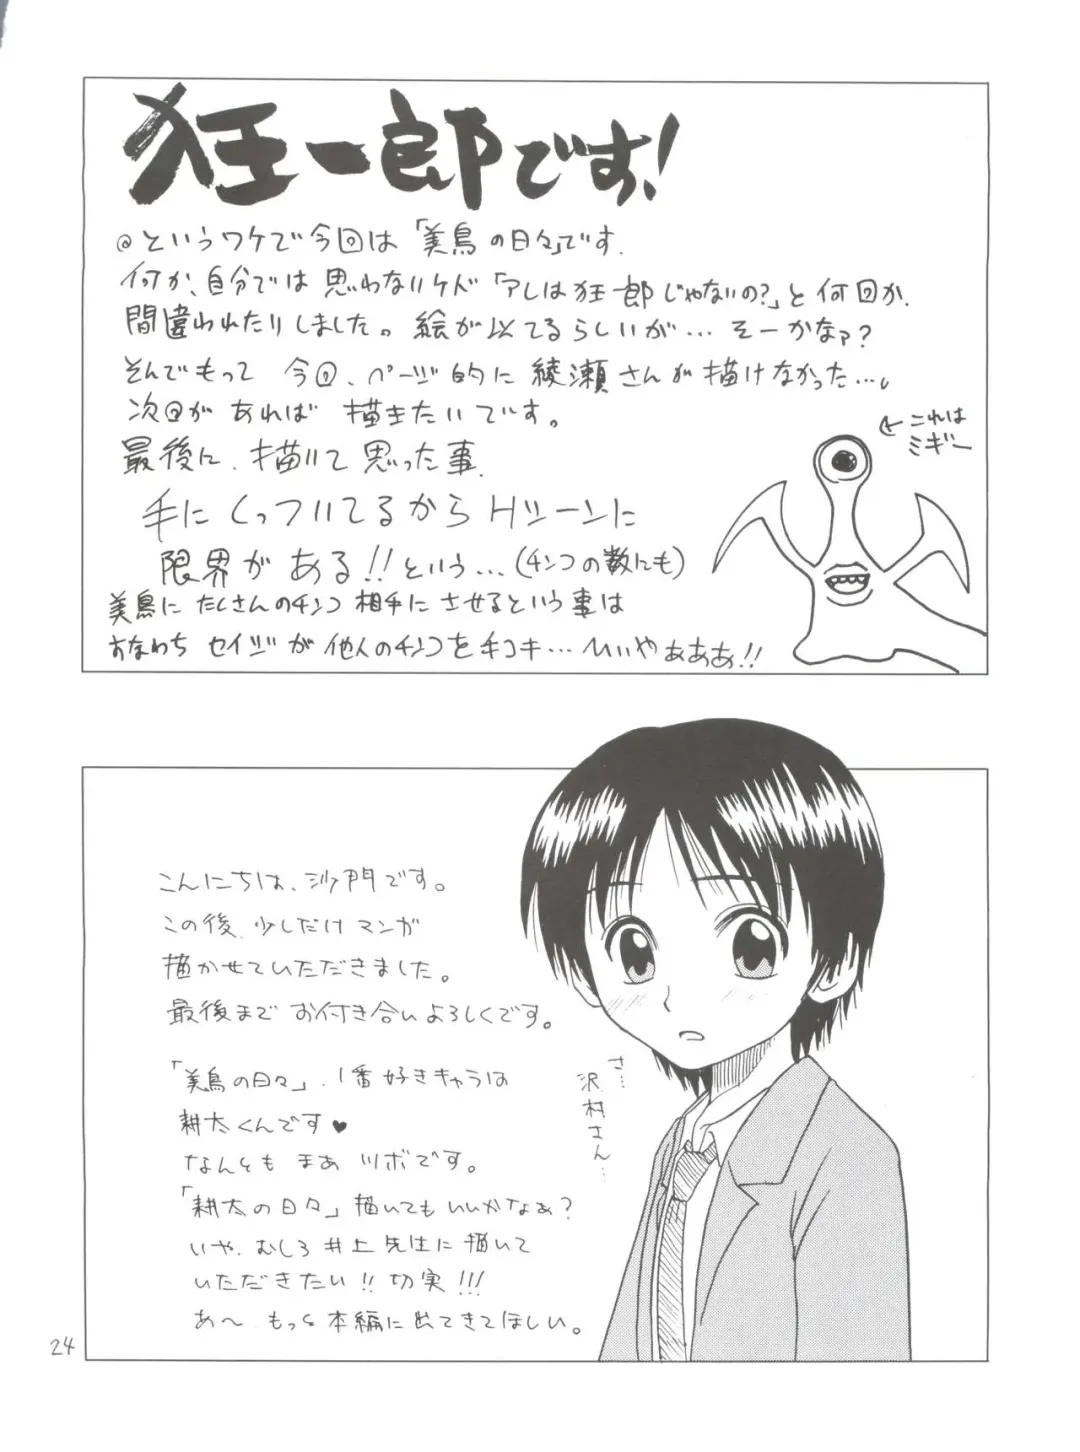 狂一郎です!
@というワケで今回は「美鳥の日々」です.
何か、自分では思わないケド「アレは狂一郎じゃないの?」と何回か、
間違われたりしました。絵が似てるらしいが…そーかなァ?
そんでもって 今回、ページ的に綾瀬さんが描けなかった…。
次回があれば 描きたいです。
最後に、描いて思った事.
手にくっついてるからHシーンに
限界がある!!という…(チンコの数にも)
美鳥にたくさんのチンコ相手にさせるという事は
すなわち セイジが他人のチンコを手コキ…ひいやぁぁぁ!!
←これは
ミギー
こんにちは、沙門です。
この後、少しだけマンガ
描かせていただきました。
最後まで お付き合いよろしくです。
「美鳥の日々」、1番好きキャラは
耕太くんです♥
なんとも まあ ツボです。
「耕太の日々」描いてもいいかなぁ?
いや、むしろ井上先生に描いて
いただきたい!!切実!!!
あ〜、もっと本編に出てきてほしい。
さ…
沢村さん…
24